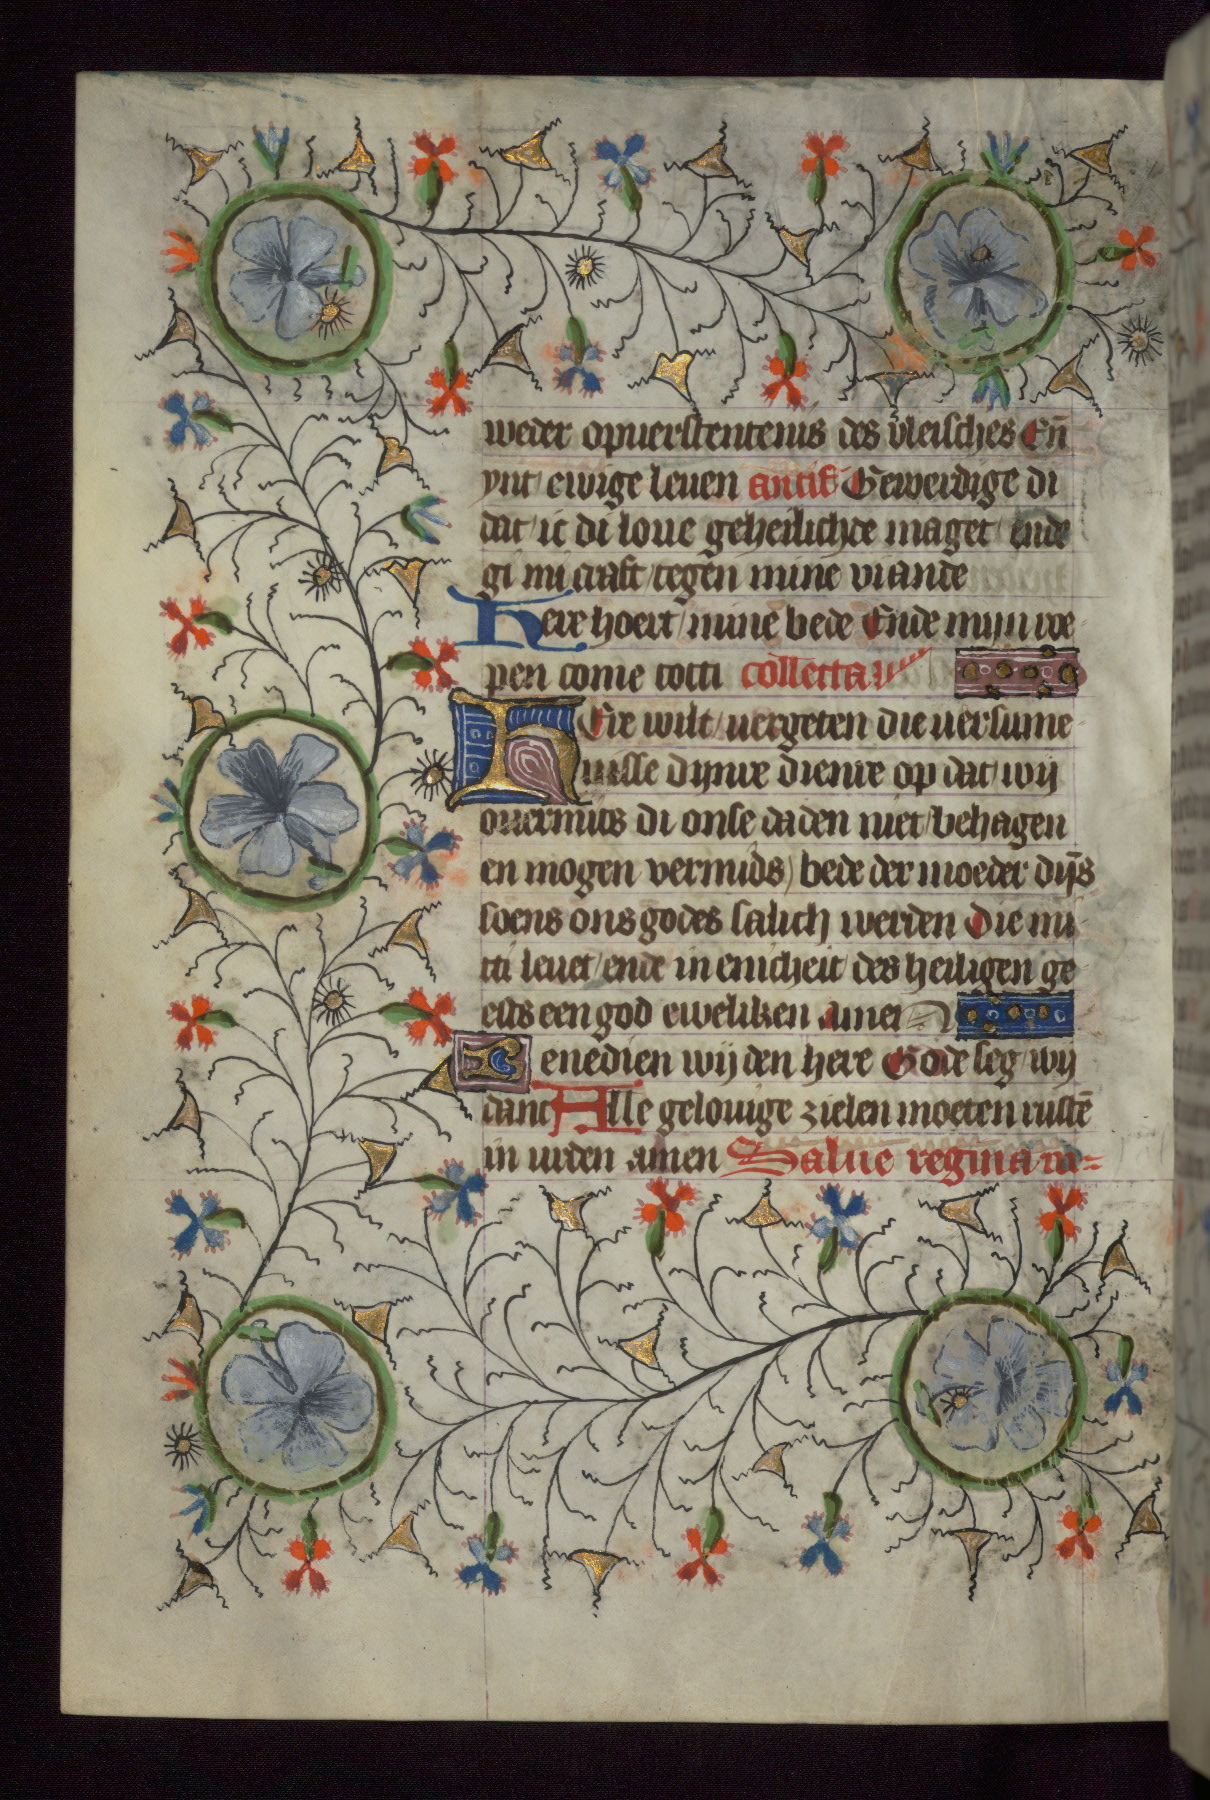 weder opuerstentenis des vleisches En̄
ynt ewige leuen antif Gewerdige di
dat ic di loue geheilichde maget ende
gi mi craft tegen mine viande
Here hoert mine bede Ende mijn we
pen come totti collecta
HEre wilt uergeten die uersume
nisse dynre dienre op dat wij
ouermits di onse daden niet behagen
en mogen vermids bede der moeder dijs
soens ons godes salich werden Die mi
tti leuet ende in enicheit des heiligen ge
ests een god eweliken amen
Benedien wij den here Gode seg wij
danc Alle gelouige zielen moeten rustē
in vrden amen Salue regina